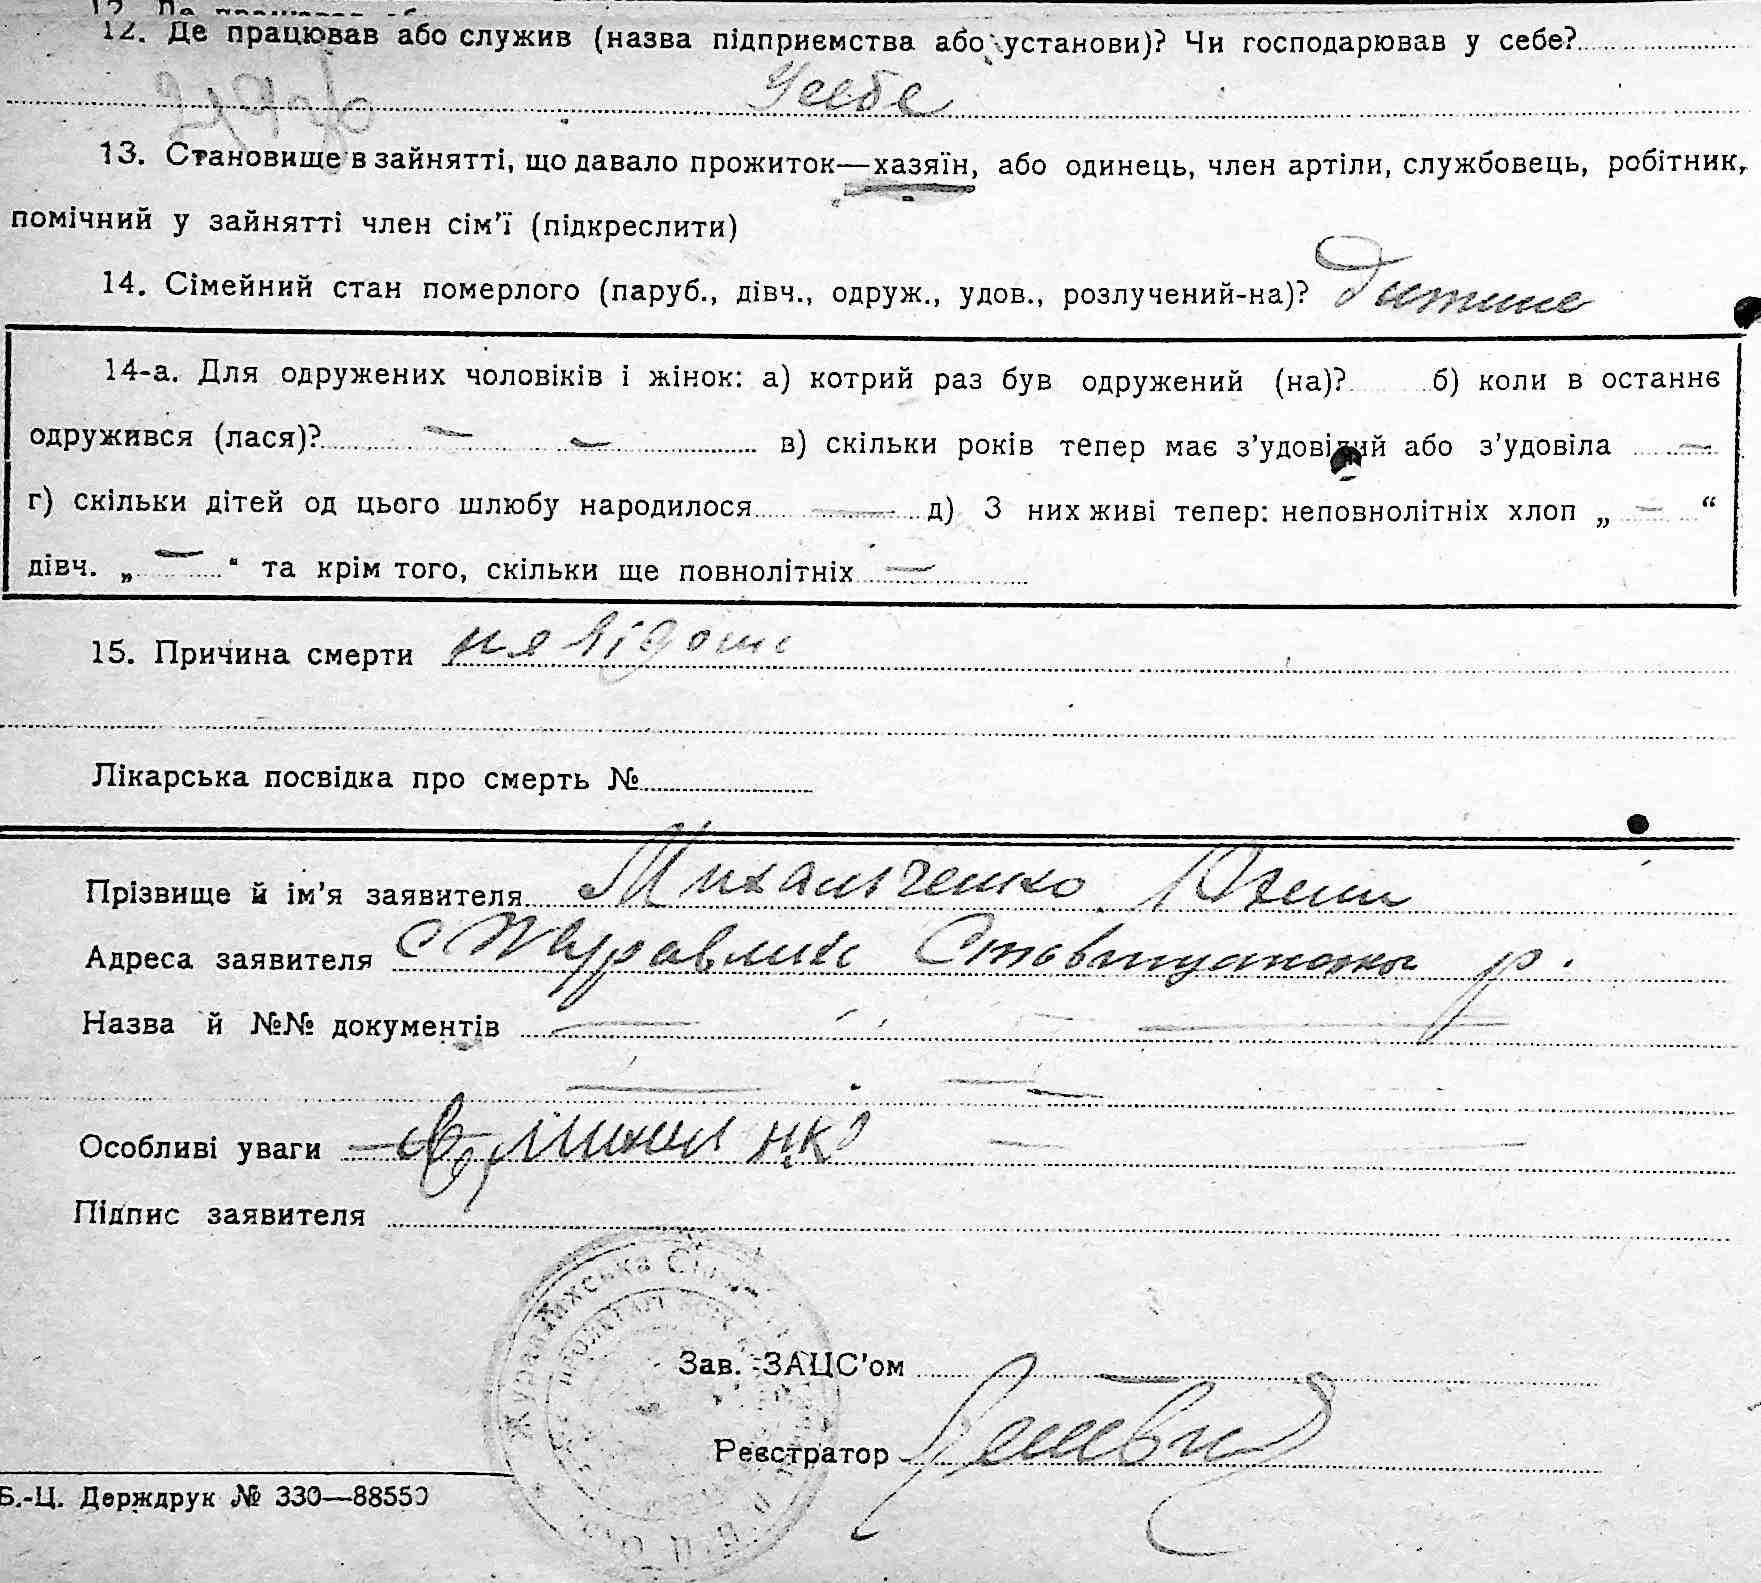 12. Де працював або служив (назва підприємства або установи)? Чи господарював у себе?
У себе
13. Становище в зайнятті, що давало прожиток—хазяїн, або одинець, член артіли, службовець, робітник,
помічний у зайнятті член сім'ї (підкреслити)
14. Сімейний стан померлого (паруб., дівч., одруж., удов., розлучений-на)? Дитина
14-а. Для одружених чоловіків і жінок: а) котрий раз був одружений (на)? б) коли в останнє
одружився (лася)? — — в) скільки років тепер має з'удовілий або з'удовіла —
г) скільки дітей од цього шлюбу народилося — д) З них живі тепер: неповнолітніх хлоп „ — “
дівч. „ — “ та крім того, скільки ще повнолітніх —
15. Причина смерти невідома
Лікарська посвідка про смерть №
Прізвище й ім'я заявителя Михальченко
Адреса заявителя с Журавлиха Ставищанськ р.
Назва й №№ документів —
Особливі уваги —
Підпис заявителя
Журавлихська
Зав. ЗАЦС'ом
Реєстратор
Б.-Ц. Держдрук № 330—88550